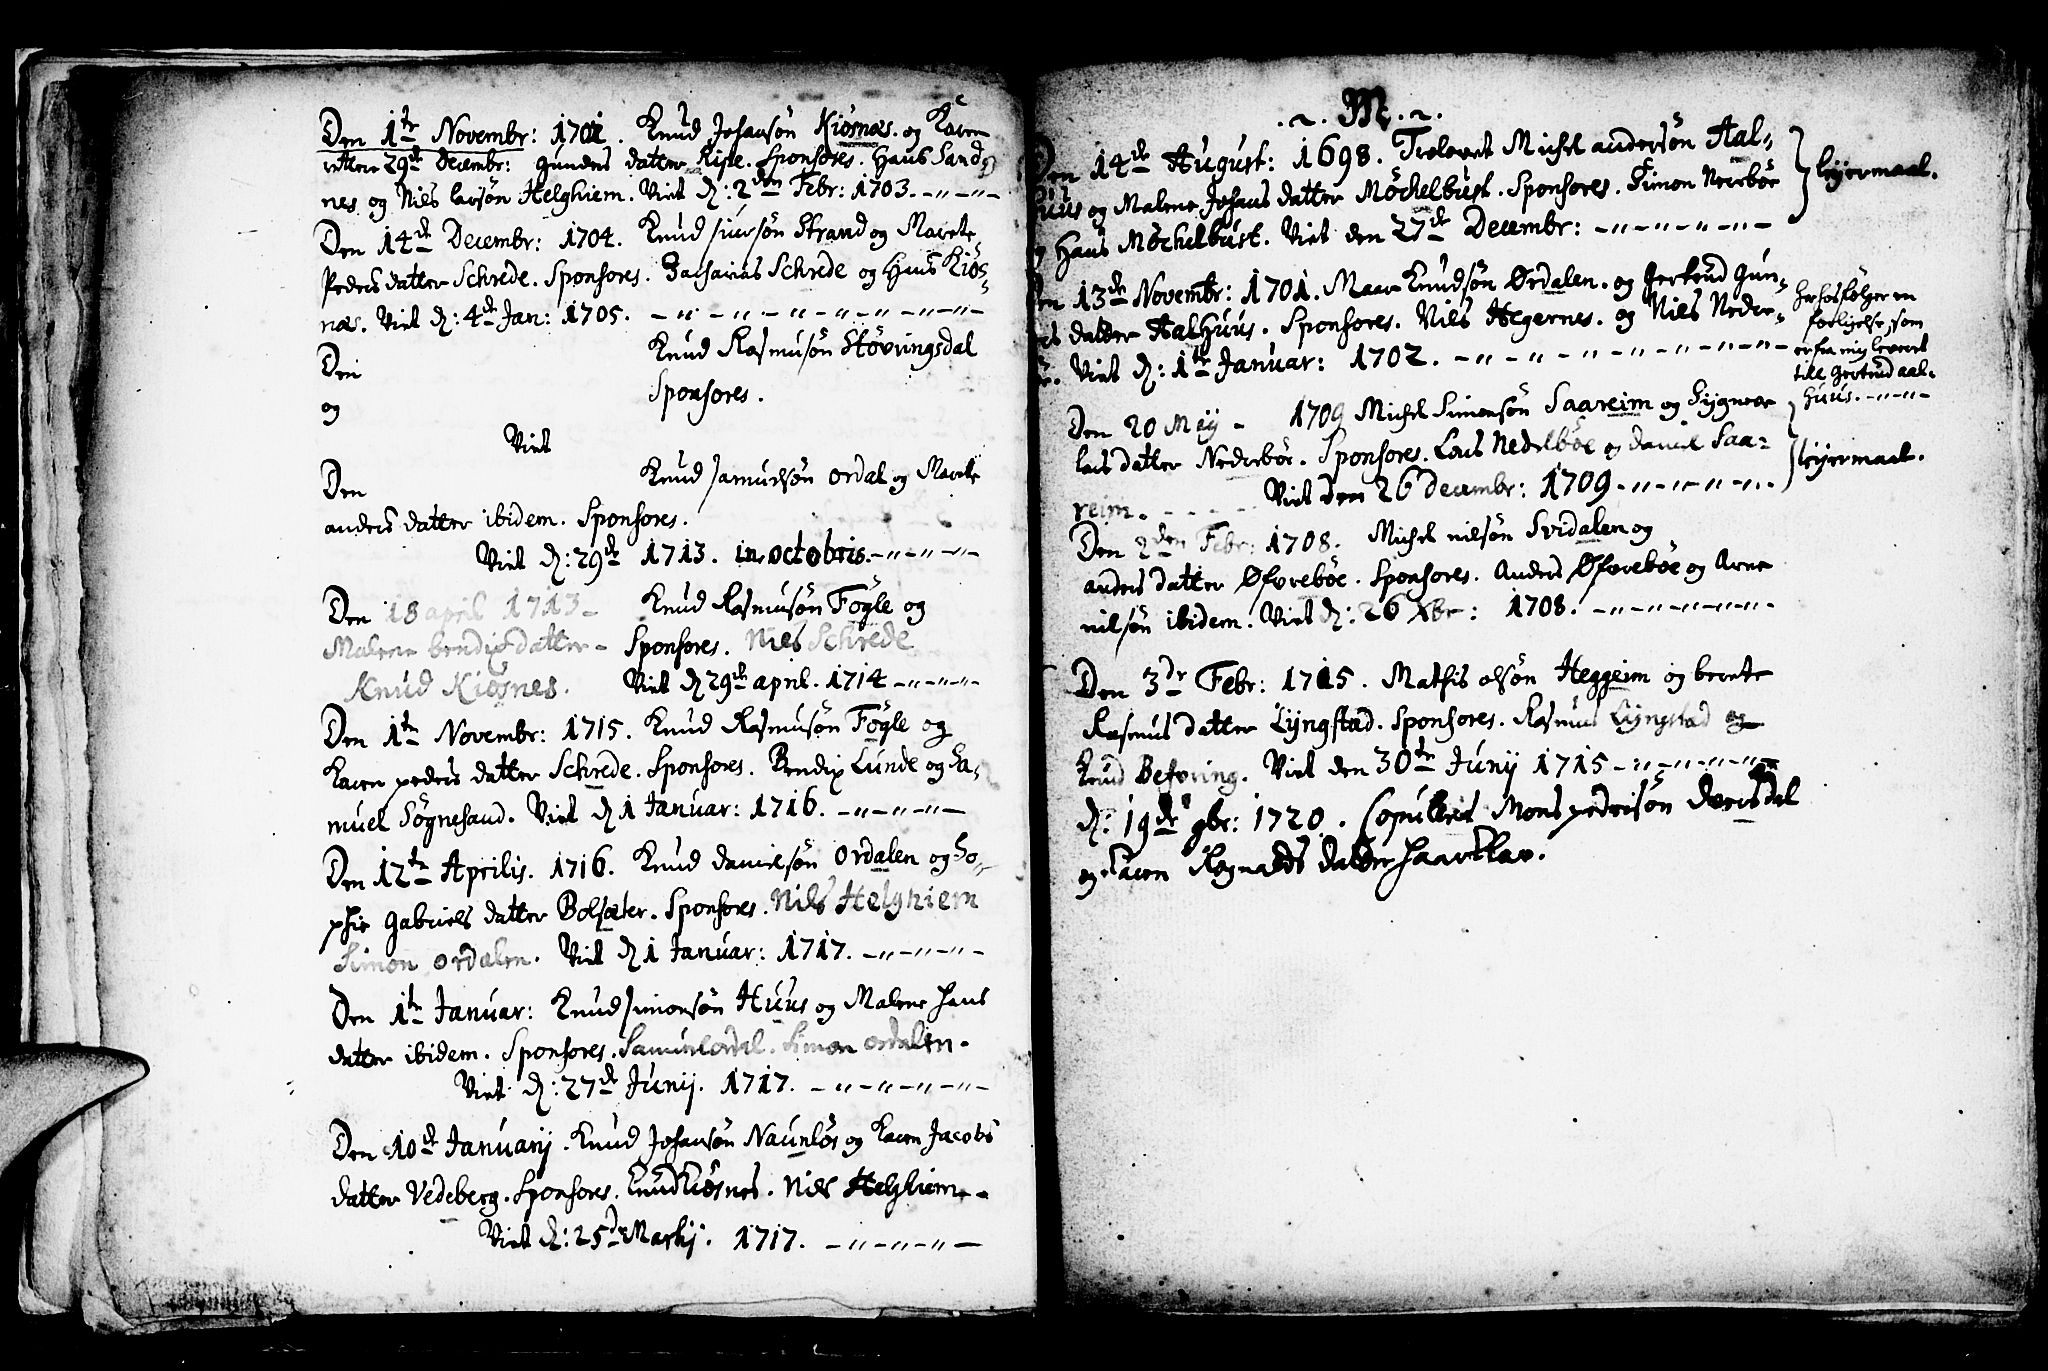 Den 1te Novembr: 1701. Knud Johansön Kiösnæs. og Karen
rettere 29de Decembr: Gunders datter Ripe. Sponsores. Hans Sand-
nes og Niels larsön Helghiem. Viet d: 2den Febr: 1703.
Den 14de Decembr: 1704. Knud siursön Strand og Marete
Peders datter Schrede. Sponsores. Zacharias Schrede og Hans Kiös-
næs. Viet d: 4de Jan: 1705.
Den Knud Rasmusön Stövringsdal
og Sponsores.
Viet
Den Knud samuelsön ordal og Marete
anders datter ibidem. Sponsores.
Viet d: 29de 1713. in octobris.
Den 18 april 1713 Knud Rasmusön Fögle og
Malene bendix datter Sponsores. Niels Schrede
Knud Kiösnes. Viet d 29de april. 1714
Den 1te Novembr: 1715. Knud Rasmusön Fögle og
Karen peders datter Schrede. Sponsores. Bendix Lunde og Sa-
muel Sögnesand. Viet d 1 Januar: 1716.
Den 12te Aprilis. 1716. Knud danielsön ordalen og So-
phie Gabriels datter Bolsæter. Sponsores. Niels Helghiem
Simon ordalen. Viet d 1 Januar: 1717.
Den 1te Januar: Knud simonsön Huus og Malene hans
datter ibidem. Sponsores. Samuel ordal. Simon ordalen.
Viet d: 27de Junij. 1717.
Den 10de Januarij. Knud Johansön Naunlös og Karen Jacobs
datter Vedeberg. Sponsores. Knud Kiösnes. Niels Helghiem
Viet d: 25de Martij. 1717.
~. M. ~.
Den 14de August: 1698. Trolovet Michel andersön Aal-
huus og Malene Johans datter Möchelbust. Sponsores. Simon Nerebör
og Hans Möchelbust. Viet den 27de Decembr:
leyermaal.
Den 13de Novembr: 1701. Knudsön Ørdalen. og Gertrud Gun-
datter Aalhuus. Sponsores. Niels Hegernes. og Niels Nedre-
Viet d: 1te Januar: 1702.
herhos fölger en
forligelse, som
er fra mig leveret
till Gertrud aal-
huus.
Den 20 Maij 1709 Michel Simonsön Saareim og Sygneve
lars datter Nedreböe. Sponsores. Lars Nedreböe og daniel Saa-
reim. Viet den 26 decembr: 1709
leyermaal.
Den 2den Febr: 1708. Michel nilsön Svidalen og
anders datter Øfvreböe. Sponsores. Anders Øfvreböe og Arne
nilsön ibidem. Viet d: 26 Xbr: 1708.
Den 3de Febr: 1715. Mathis olsön Heggeim og berete
Rasmus datter Lÿngstad. Sponsores. Rasmus Lyngstad og
Knud Befring. Viet den 30te Junij 1715
d: 19de 9br: 1720. Copulerit Mons pedersön Dvergsdal
og Karen Rognalds datter haarklav.